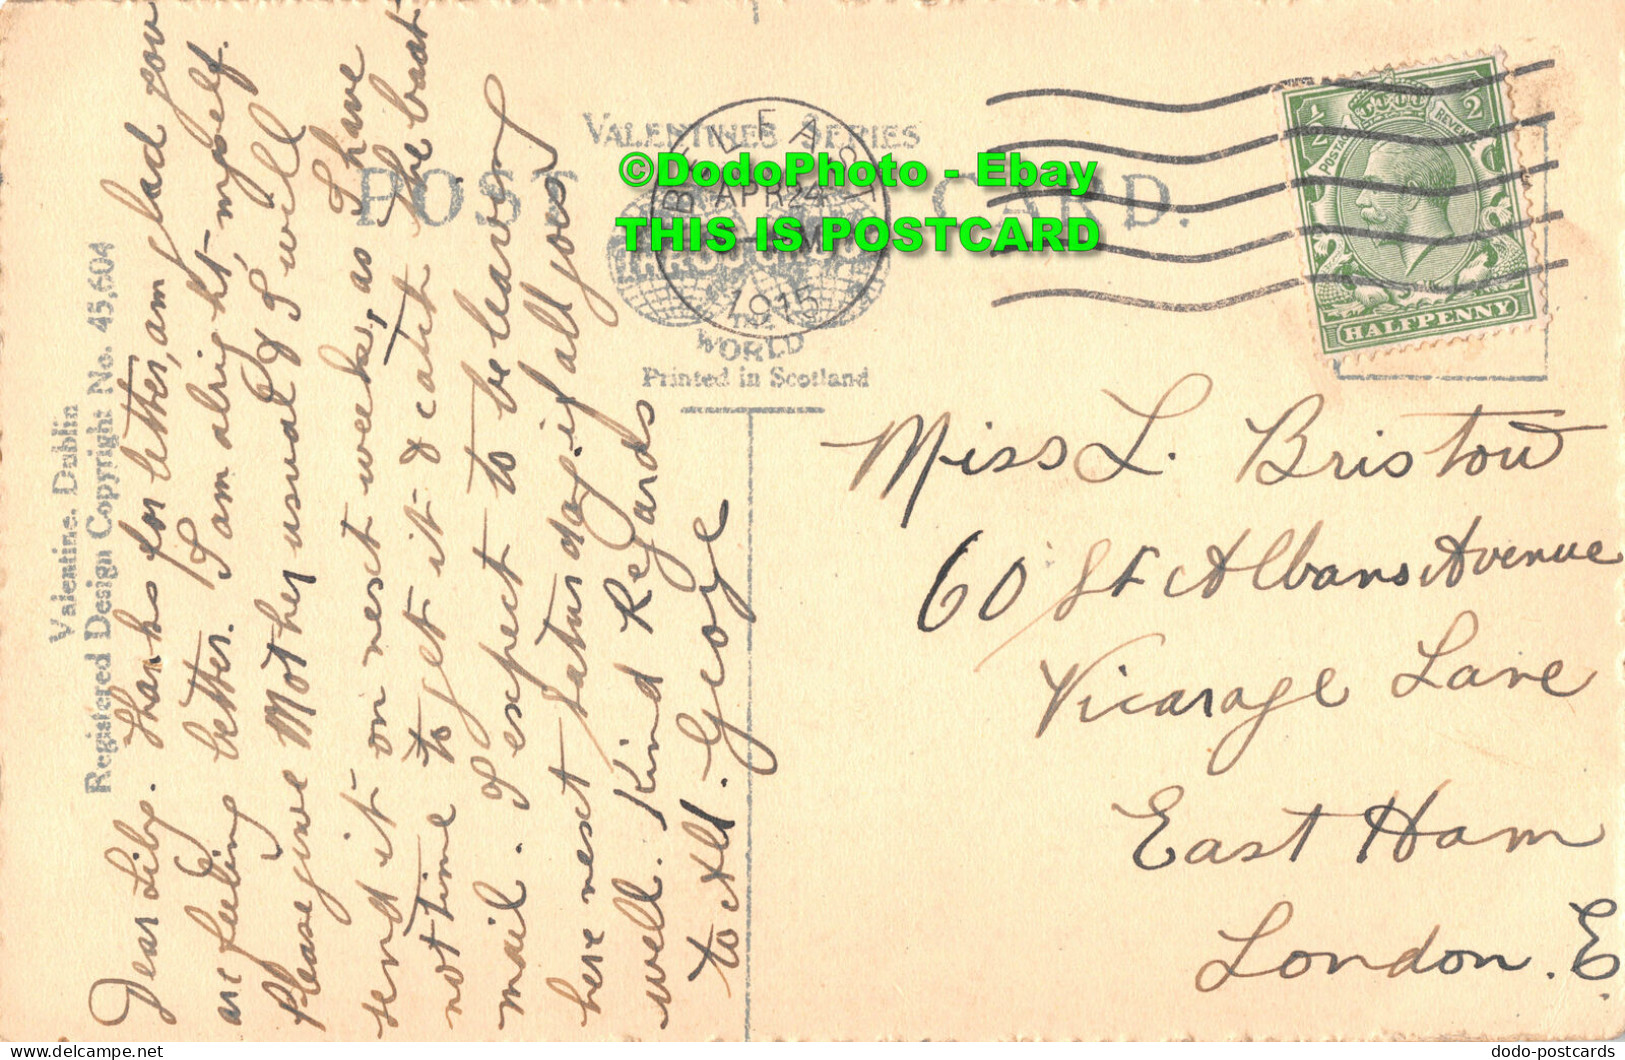 VALENTINES SERIES
POST CARD.
BELFAST
APR 24
1915
WORLD
Printed in Scotland
©DodoPhoto - Ebay
THIS IS POSTCARD
POSTAL REVENUE
½ ½
HALFPENNY
Valentine, Dublin
Registered Design Copyright No. 45,604
Dear Lily. Thanks for letter, am glad you
are feeling better. I am alright myself.
Please give Mother usual & I will
send it on next week, as I have
not time to get it & catch the boat
mail. I expect to be leaving
here next Saturday if all goes
well. Kind Regards
to All. George
Miss L. Bristow
60 St Albans Avenue
Vicarage Lane
East Ham
London. E
dodo-postcards